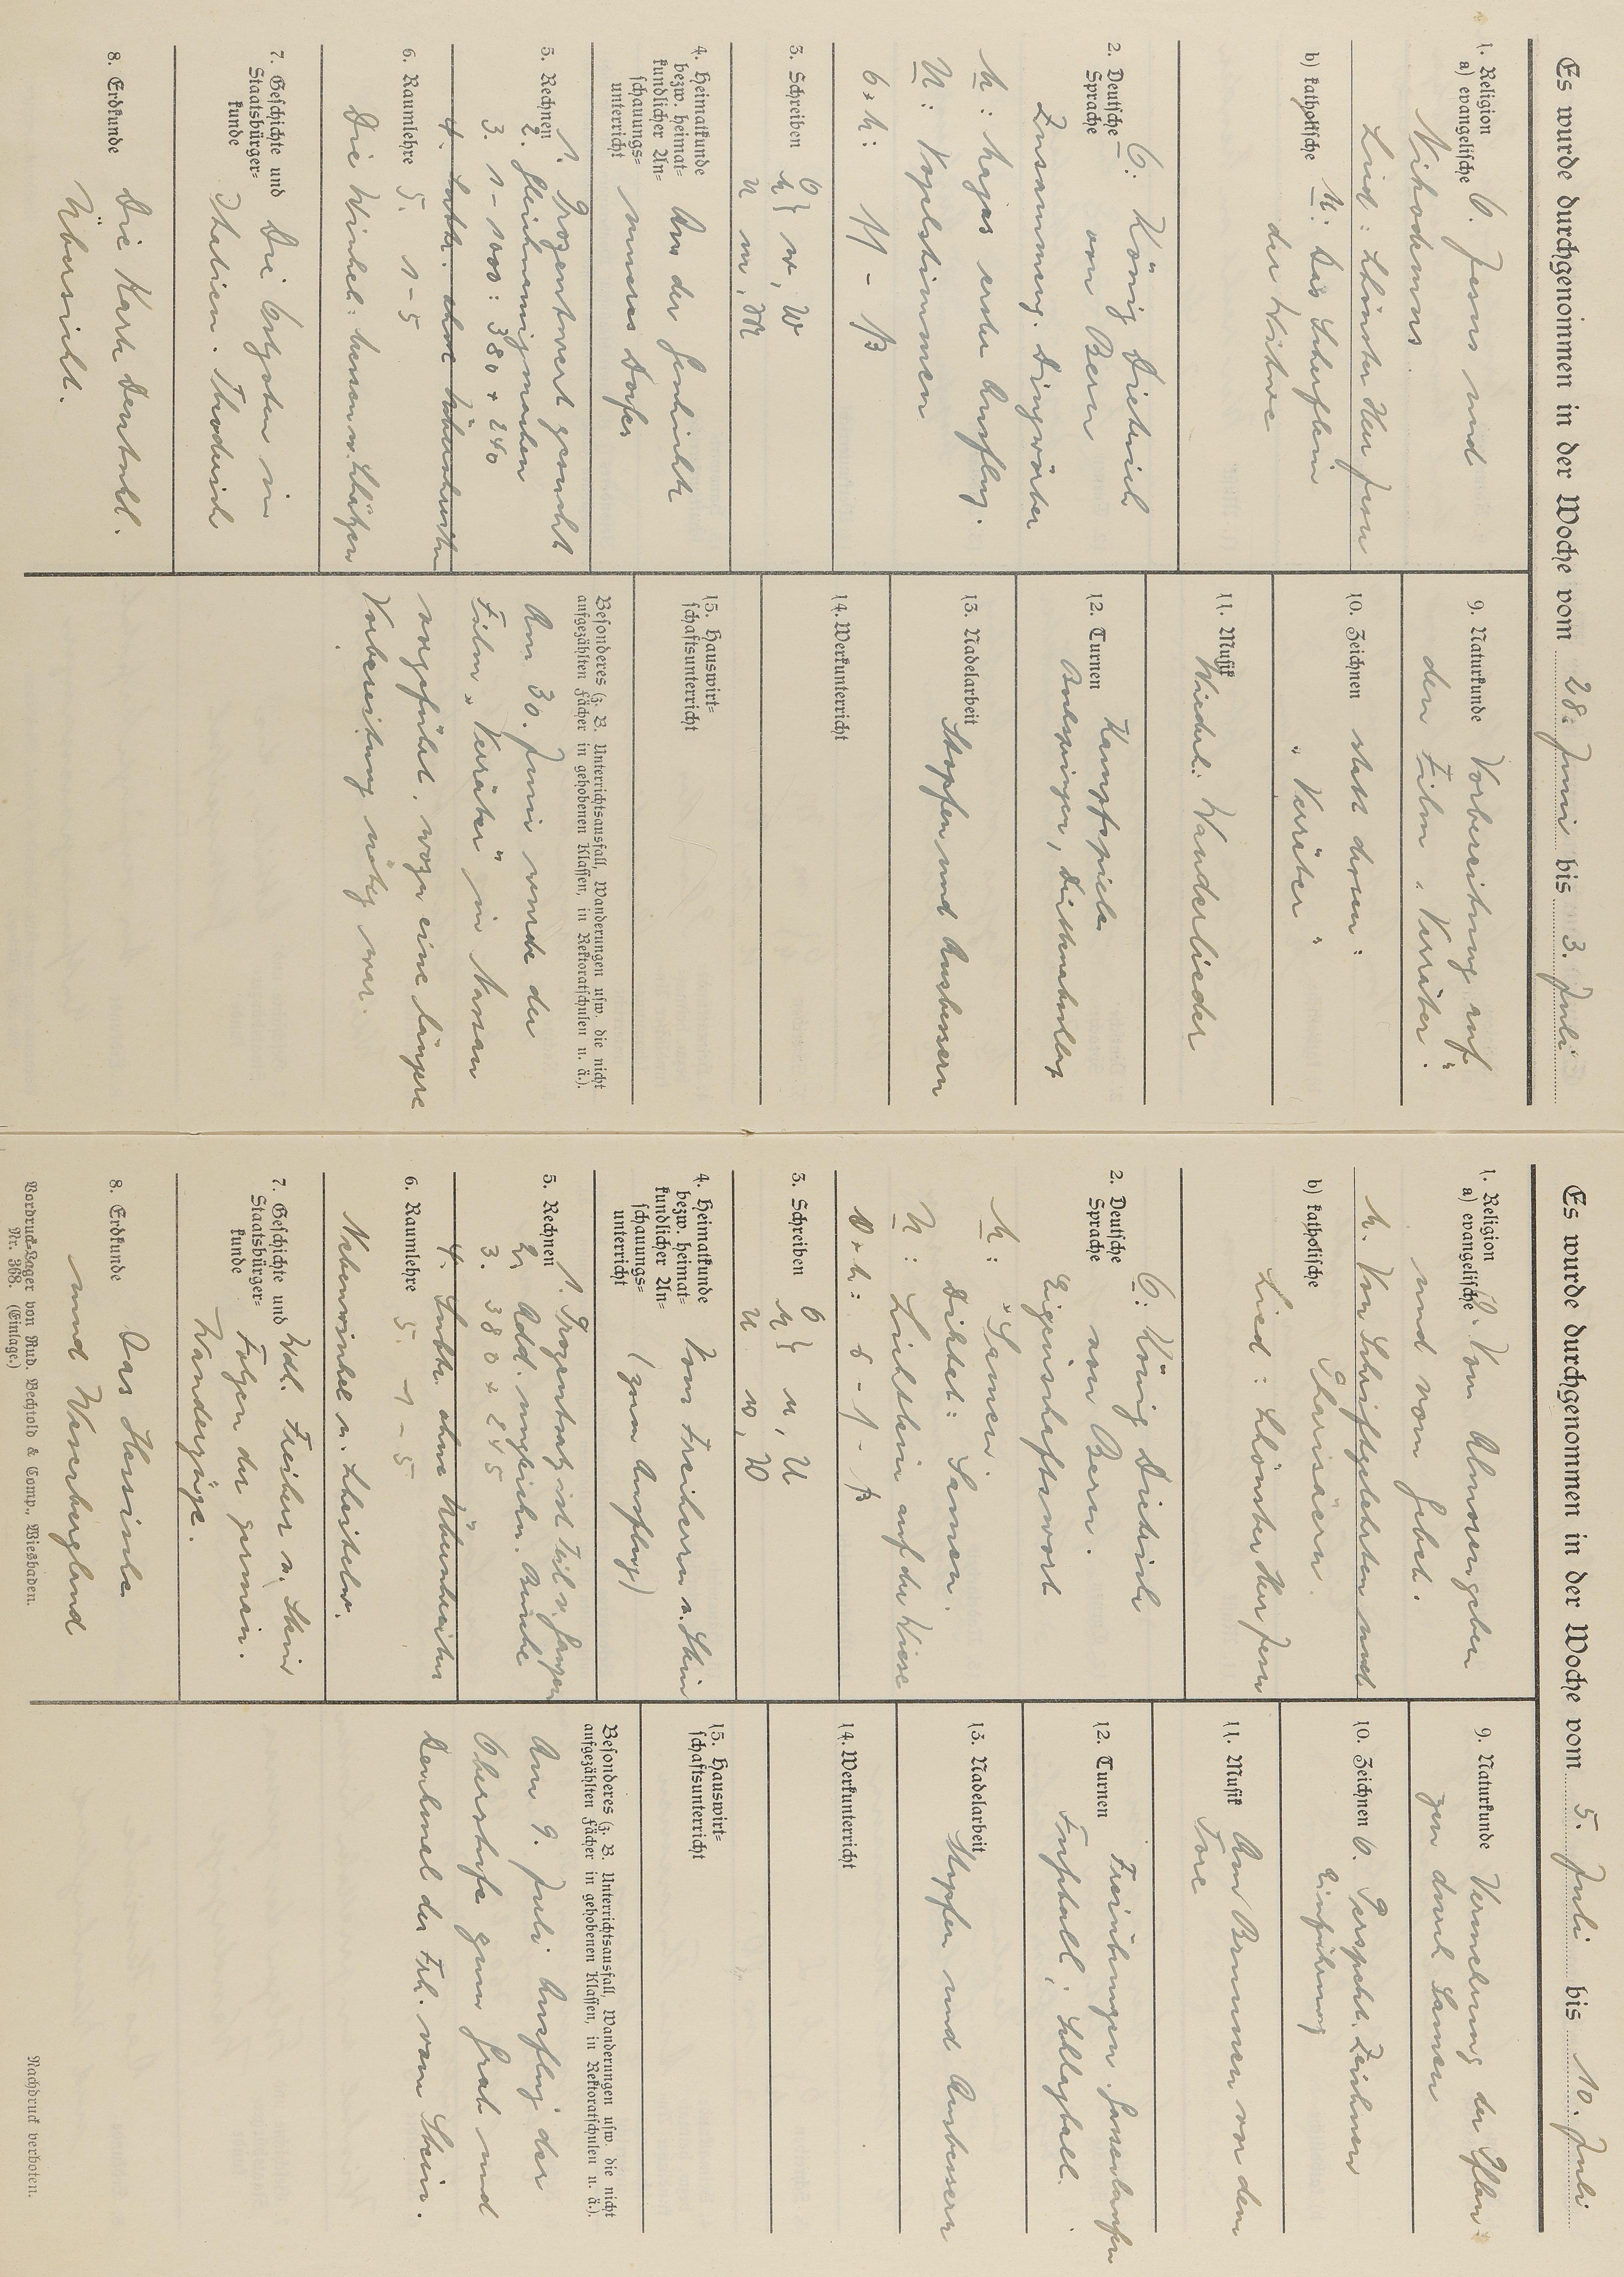 Es wurde durchgenommen in der Woche vom 28. Juni bis 3. Juli
1. Religion
a) evangelische O. Jesus und
Nikodemus.
Lied: Schönster Herr Jesu
b) katholische M: Das Scherflein
der Witwe
2. Deutsche
Sprache O: König Dietrich
von Bern
Zusammeng. Dingwörter
M: erster Ausflug.
U: Vogelstimmen
3. Schreiben O
M } w, W
U m, M
4. Heimatkunde
bezw. heimat-
kundlicher An-
schauungs-
unterricht
Aus der Geschichte
unseres Dorfes
5. Rechnen 1. Prozentwert gesucht
2. Gleichnamigmachen
3. 1-1000: 380 + 240
4. Subtr. ohne
5. 1-5
6. Raumlehre
Die Winkel: messen u. schätzen
7. Geschichte und
Staatsbürger-
kunde
Die Ostgoten in
Italien. Theoderich
8. Erdkunde
Die Karte Deutschl.
Übersicht.
9. Naturkunde Vorbereitung auf
den Film „Verräter".
10. Zeichnen statt dessen:
„Verräter"
11. Musik
Wiederh. Wanderlieder
12. Turnen Kampfspiele
Bockspringen,
13. Nadelarbeit
Stopfen und Ausbessern
14. Werkunterricht
15. Hauswirt-
schaftsunterricht
Besonderes (z. B. Unterrichtsausfall, Wanderungen usw. die nicht
aufgezählten Fächer in gehobenen Klassen, in Rektoratschulen u. ä.).
Am 30. Juni wurde der
Film „Verräter" in Nassau
vorgeführt, wozu eine längere
Vorbereitung nötig war.
Es wurde durchgenommen in der Woche vom 5. Juli bis 10. Juli
1. Religion
a) evangelische O. Vom Almosengeben
und vom Gebet.
M. Von Schriftgelehrten und
Pharisäern.
b) katholische
Lied: Schönster Herr Jesu
2. Deutsche
Sprache O: König Dietrich
von Bern.
Eigenschaftswort
M: „Samen"
Diktat: Samen.
U: auf der Wiese
3. Schreiben O
M } u, U
U w, W
4. Heimatkunde
bezw. heimat-
kundlicher An-
schauungs-
unterricht
Vom Freiherrn v. Stein
(zum Ausflug)
5. Rechnen 1. Prozentsatz ist Teil v. Ganzen
2. Add. ungleichn. Brüche
3. 380 + 245
4. Subtr. ohne
5. 1-5
6. Raumlehre
Nebenwinkel u. Scheitelw.
7. Geschichte und
Staatsbürger-
kunde
Wdh. Freiherr v. Stein
Folgen der german.
Wanderzüge.
8. Erdkunde
Das Hessische
und Weserbergland
Vordruck-Lager von Rud. Bechtold & Comp., Wiesbaden.
Nr. 368. (Einlage.)
9. Naturkunde Vermehrung der Pflan-
zen durch Samen
10. Zeichnen O. Perspekt. Zeichnen
Einführung
11. Musik Am Brunnen vor dem
Tore
12. Turnen Freiübungen.
Fußball, Schlagball.
13. Nadelarbeit
Stopfen und Ausbessern
14. Werkunterricht
15. Hauswirt-
schaftsunterricht
Besonderes (z. B. Unterrichtsausfall, Wanderungen usw. die nicht
aufgezählten Fächer in gehobenen Klassen, in Rektoratschulen u. ä.).
Am 9. Juli Ausflug der
Oberstufe zum Grab und
Denkmal des Frh. vom Stein.
Nachdruck verboten.